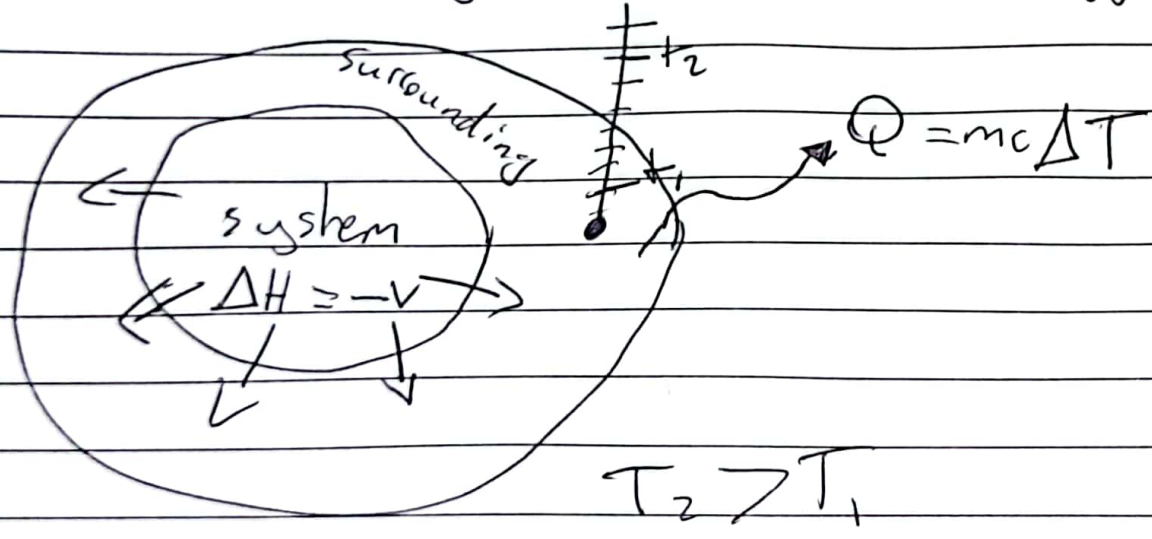 surrounding
t₂
t₁
Q = mcΔT
system
ΔH = -v
T₂ > T₁